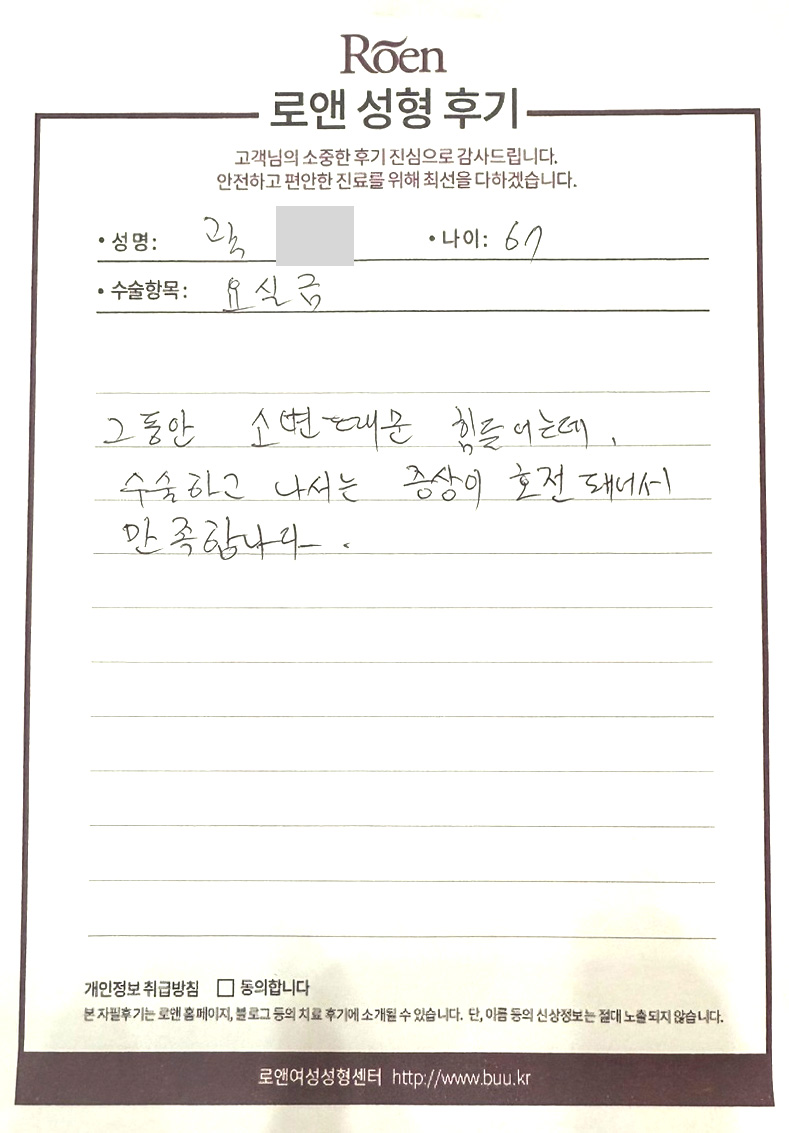 Rōen
로앤 성형 후기
고객님의 소중한 후기 진심으로 감사드립니다.
안전하고 편안한 진료를 위해 최선을 다하겠습니다.
• 성명: • 나이: 67
• 수술항목: 요실금
그동안 소변때문 힘들어는데,
수술하고 나서는 증상이 호전돼너서
만족합니다.
개인정보 취급방침 □ 동의합니다
본 자필후기는 로앤 홈페이지, 블로그 등의 치료 후기에 소개될 수 있습니다. 단, 이름 등의 신상정보는 절대 노출되지 않습니다.
로앤여성성형센터 http://www.buu.kr